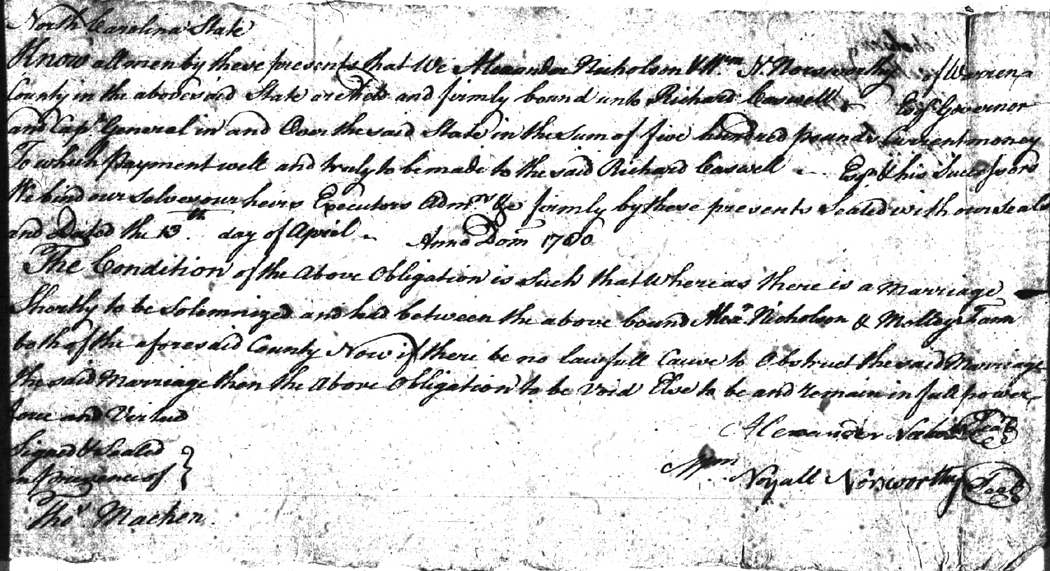 North Carolina State
Know all men by these presents that We Alexander Nicholson & Wm N Norsworthy of Warren
County in the abovesaid State are held and firmly bound unto Richard Caswell Esqr Governor
and Capt General in and Over the said State in the sum of five hundred pounds Current money
To which payment well and truly to be made to the said Richard Caswell Esqr & his Successors
We bind our selves our heirs Executors Admrs &c firmly by these presents Sealed with our Seals
and Dated the 13th day of April Anno Dom 1780
The Condition of the Above Obligation is Such that Whereas there is a Marriage
Shortly to be Solemnized and had between the above bound Alexr Nicholson & Molley Tam
both of the aforesaid County Now if there be no lawfull Cause to Obstruct the said Marriage
the said Marriage then the Above Obligation to be Void Else to be and remain in full power
force and Virtue
Signed & Sealed
in Presence of
Alexander Seal
Wm Noyall Norsworthy Seal
Thos Machen